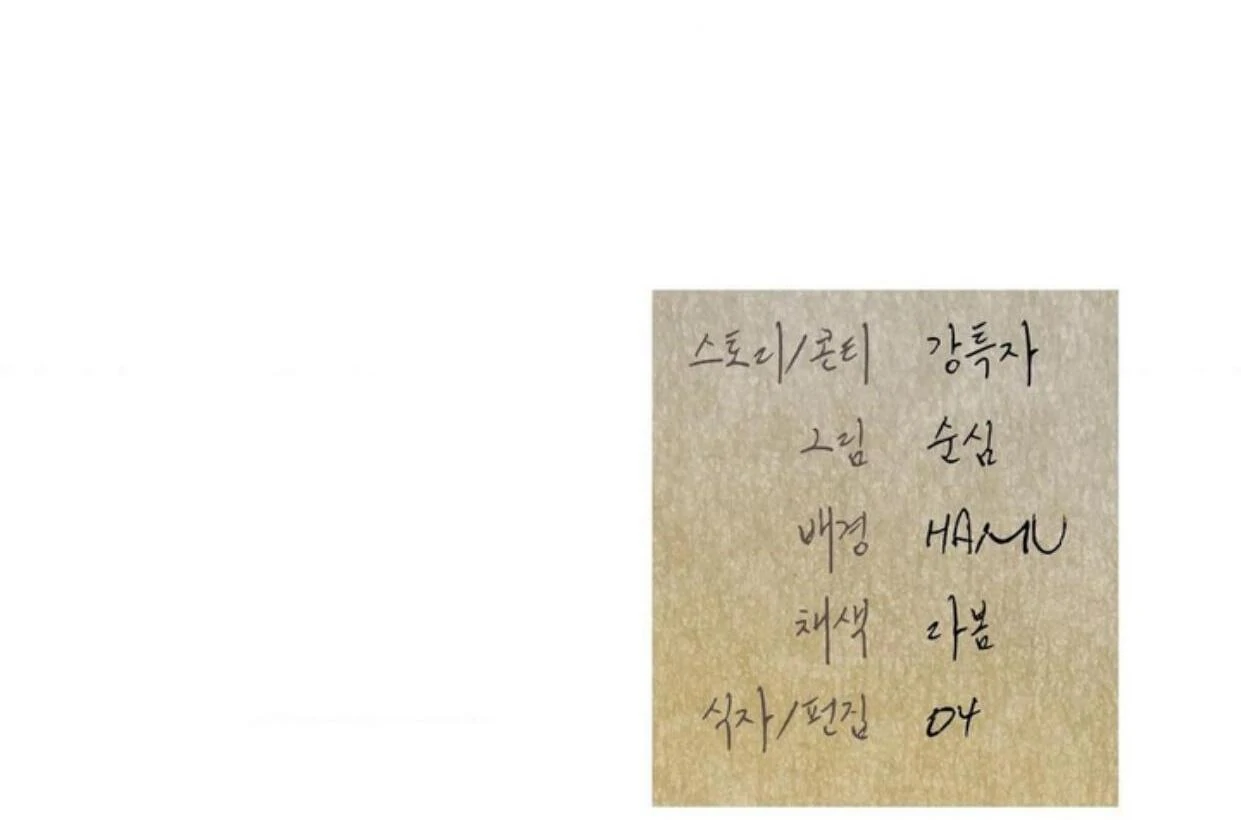 스토리/콘티 강특자
그림 순심
배경 HAMU
채색 라봄
식자/편집 04